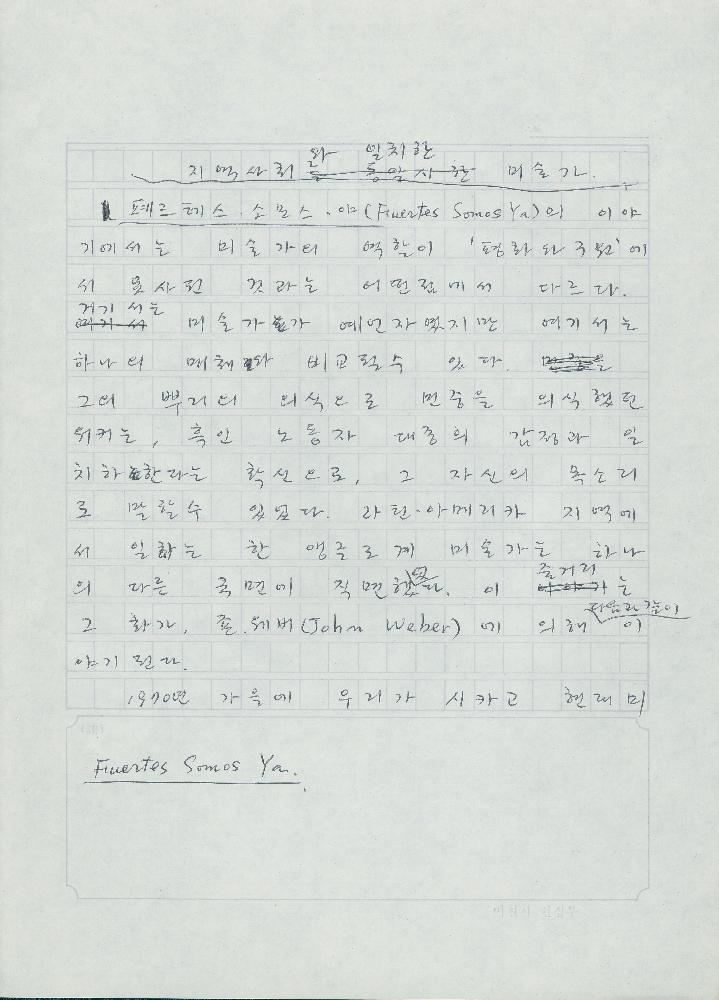 와 일치한
지역사회를 동일시한 미술가.
페르테스·소모스·야(Fuertes Somos Ya)의 이야
기에서는 미술가의 역할이 '평화와 구원'에
서 묘사된 것과는 어떤점에서 다르다.
거기서는
미술가가 예언자였지만 여기서는
하나의 매체와 비교될수 있다.
그의 뿌리의 의식으로 민중을 의식했던
워커는, 흑인 노동자 대중의 감정과 일
치하한다라는 확신으로, 그 자신의 목소리
로 말할수 있었다. 라틴·아메리카 지역에
서 일하는 한 앵글로계 미술가는 하나
의 다른 국면에 직면했다. 이 줄거리는
다음과 같이
그 화가, 죤.웨버(John Weber)에 의해 이
야기 된다.
1970년 가을에 우리가 시카고 현대미
Fuertes Somos Ya.